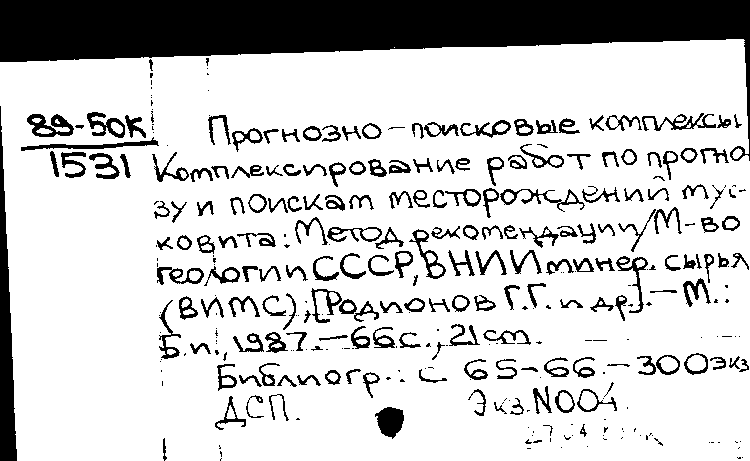 89-50К
1531
Прогнозно-поисковые комплексы
Комплексирование работ по прогно
зу и поискам месторождений мус-
ковита: Метод. рекомендации/М-во
геологии СССР, ВНИИ минер. сырья
(ВИМС); [Родионов Г.Г. и др.].—М.:
Б.и., 1987.—66с.; 21см.
Библиогр.: с. 65-66.—300экз
ДСП. Экз.N004.